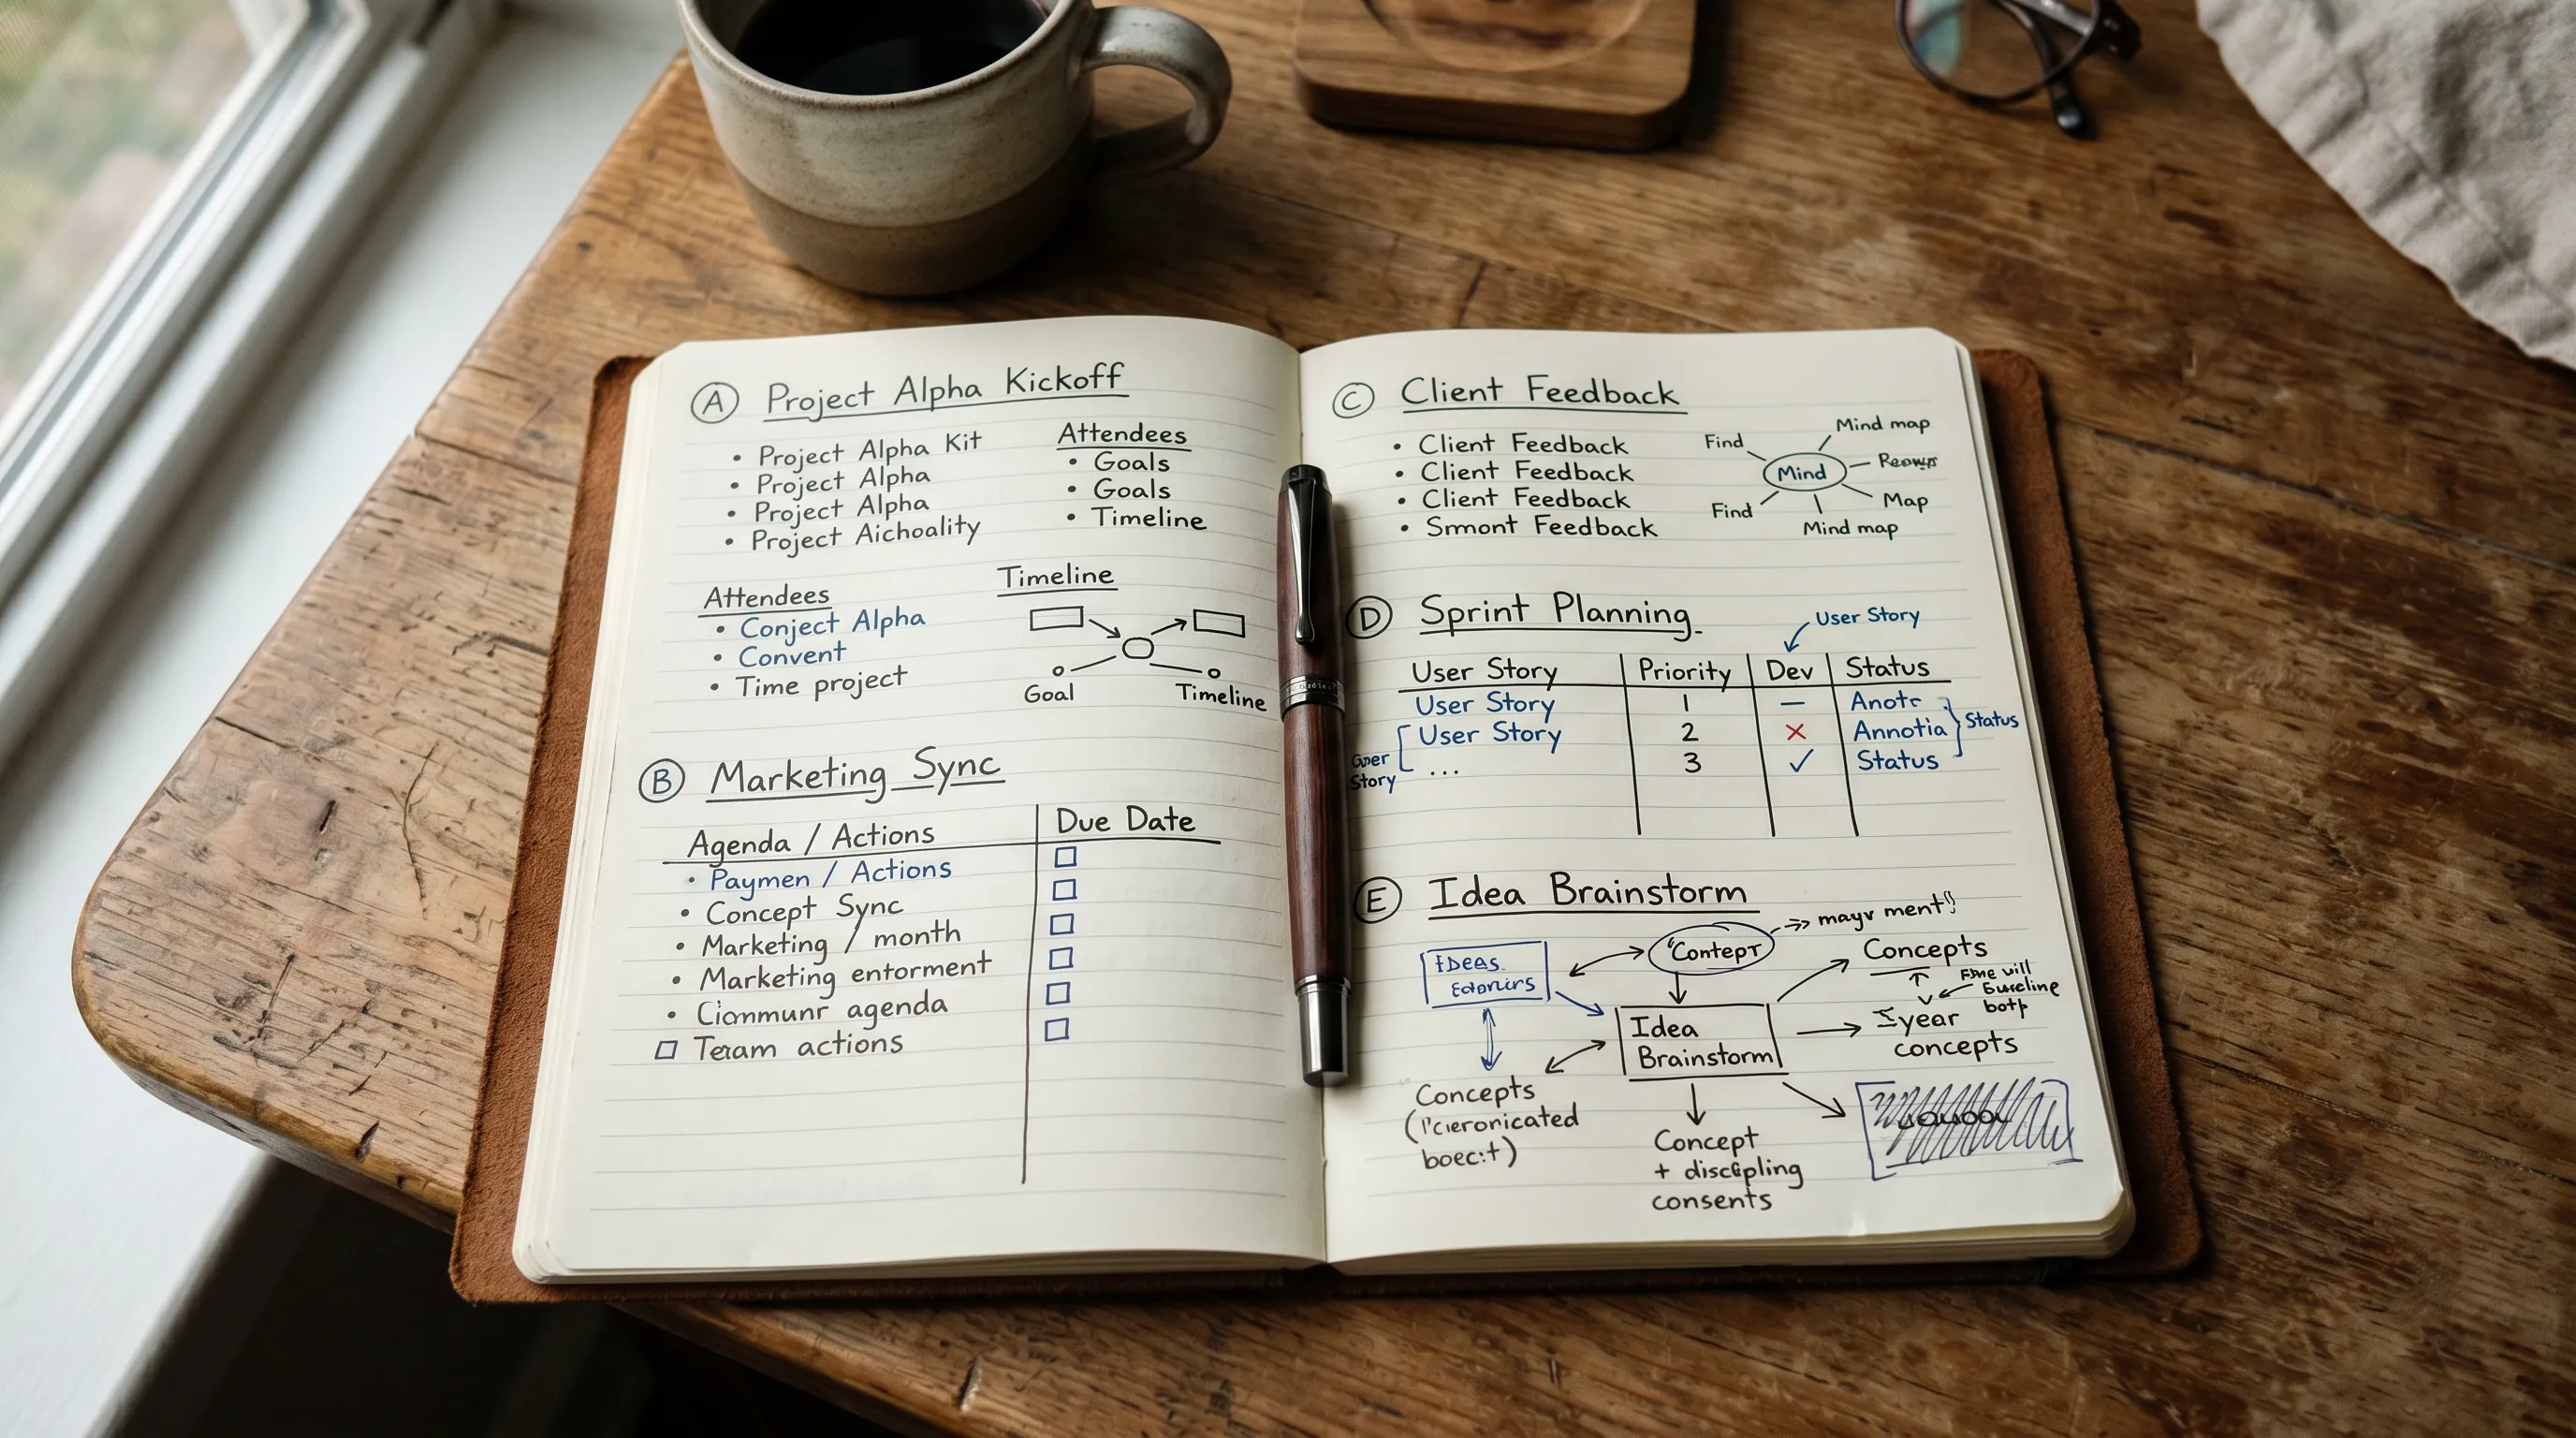 A Project Alpha Kickoff
• Project Alpha Kit
• Project Alpha
• Project Alpha
• Project Aichoality
Attendees
• Goals
• Goals
• Timeline
Attendees
• Conject Alpha
• Convent
• Time project
Timeline
Goal
Timeline
B Marketing Sync
Agenda / Actions Due Date
• Paymen / Actions
• Concept Sync
• Marketing / month
• Marketing entorment
• agenda
actions
C Client Feedback
• Client Feedback
• Client Feedback
• Client Feedback
• Srmont Feedback
Mind map
Find
Mind
Map
Find
Mind map
D Sprint Planning
User Story
User Story Priority Dev Status
User Story 1 — Anotc
User Story 2 × Annotia
... 3 ✓ Status
Status
Story
E Idea Brainstorm
ment
Contept
Concepts
Idea
Brainstorm
year
concepts
Concepts
Concept
+
consents